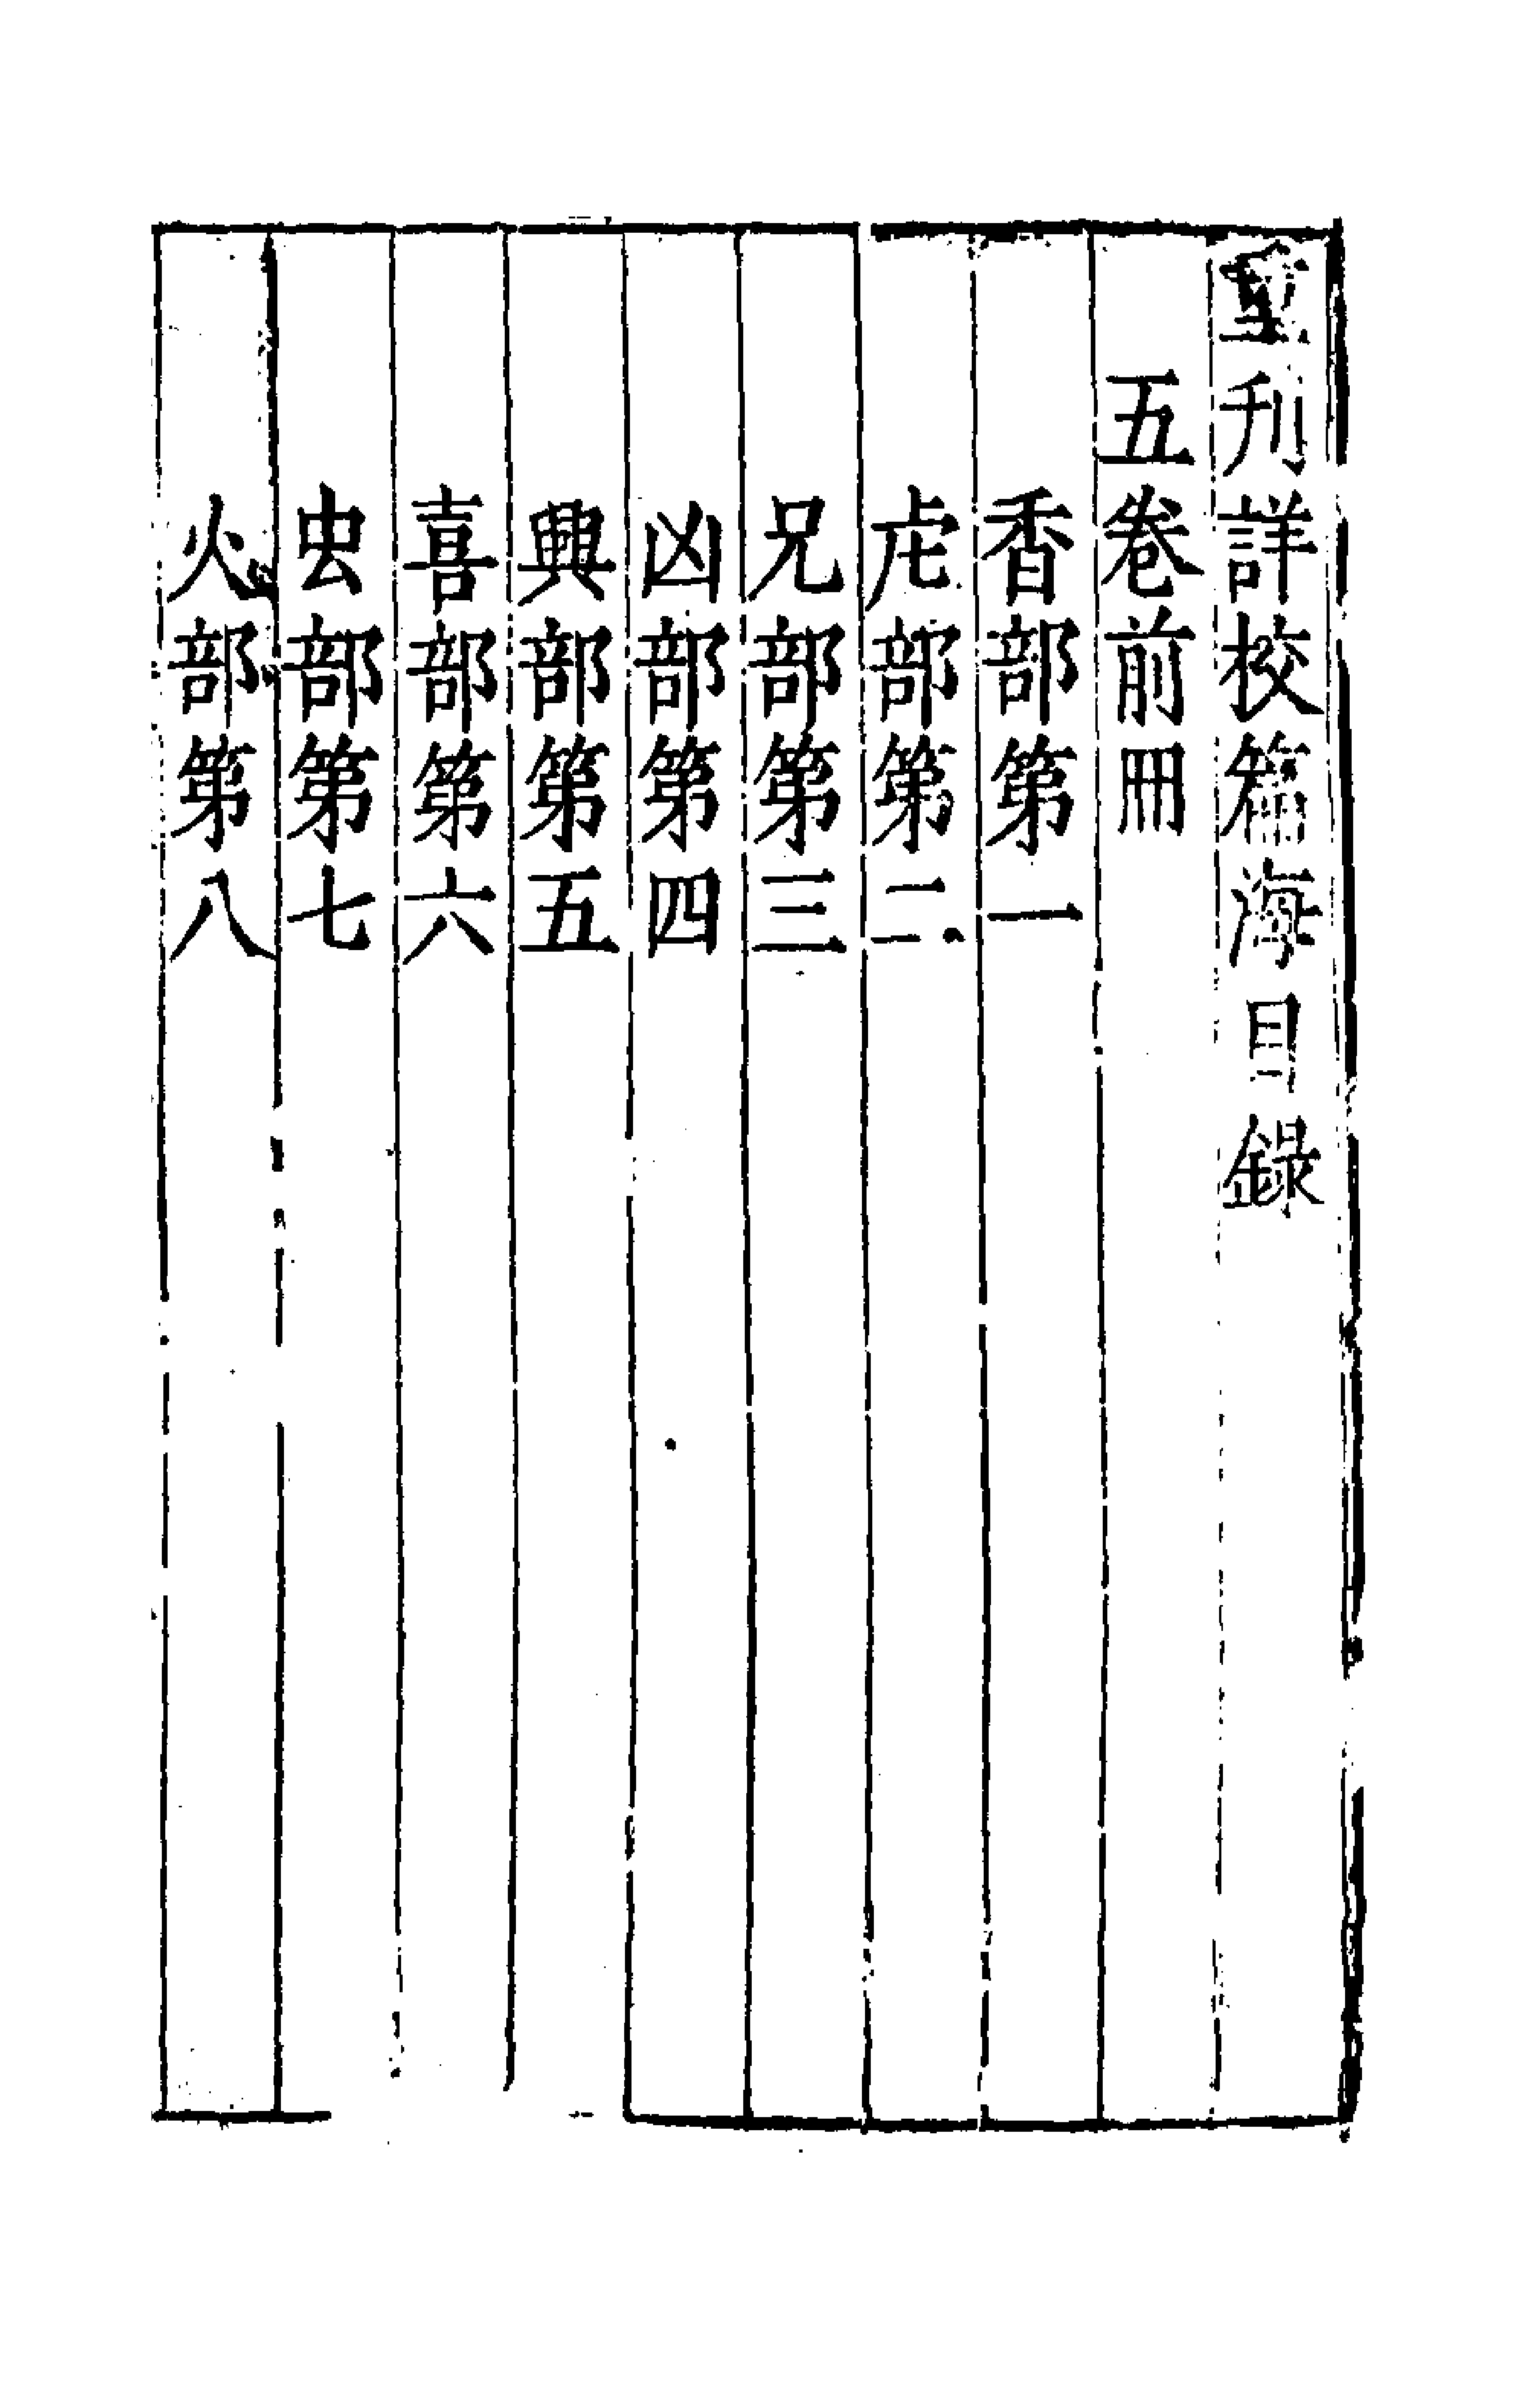 重刋詳校篇海目錄
五卷前冊
香部第一
虍部第二
兄部第三
凶部第四
興部第五
喜部第六
虫部第七
火部第八